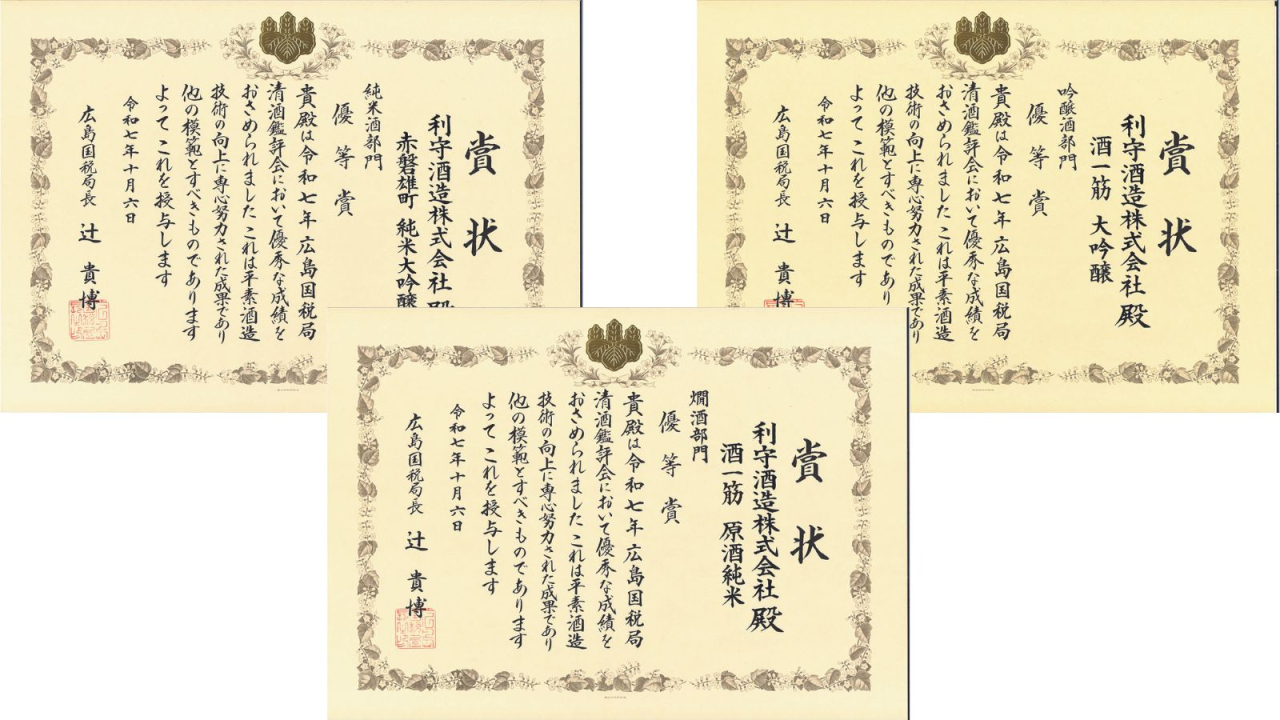 賞状
利守酒造株式会社 殿
赤磐雄町 純米大吟醸
純米酒部門
優等賞
貴殿は令和七年広島国税局
清酒鑑評会において優秀な成績を
おさめられました これは平素酒造
技術の向上に専心努力された成果であり
他の模範とすべきものであります
よって これを授与します
令和七年十月六日
広島国税局長 辻 貴博
賞状
利守酒造株式会社 殿
酒一筋 大吟醸
吟醸酒部門
優等賞
貴殿は令和七年広島国税局
清酒鑑評会において優秀な成績を
おさめられました これは平素酒造
技術の向上に専心努力された成果であり
他の模範とすべきものであり
よって これを授与します
令和七年十月六日
広島国税局長 辻 貴博
賞状
利守酒造株式会社 殿
酒一筋 原酒純米
燗酒部門
優等賞
貴殿は令和七年広島国税局
清酒鑑評会において優秀な成績を
おさめられました これは平素酒造
技術の向上に専心努力された成果であり
他の模範とすべきものであります
よって これを授与します
令和七年十月六日
広島国税局長 辻 貴博